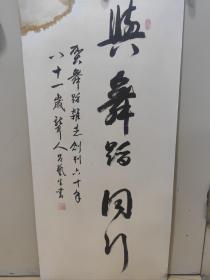 與舞蹈同行
贺舞蹈雜志创刊六十年
八十一歲聾人吕藝生书